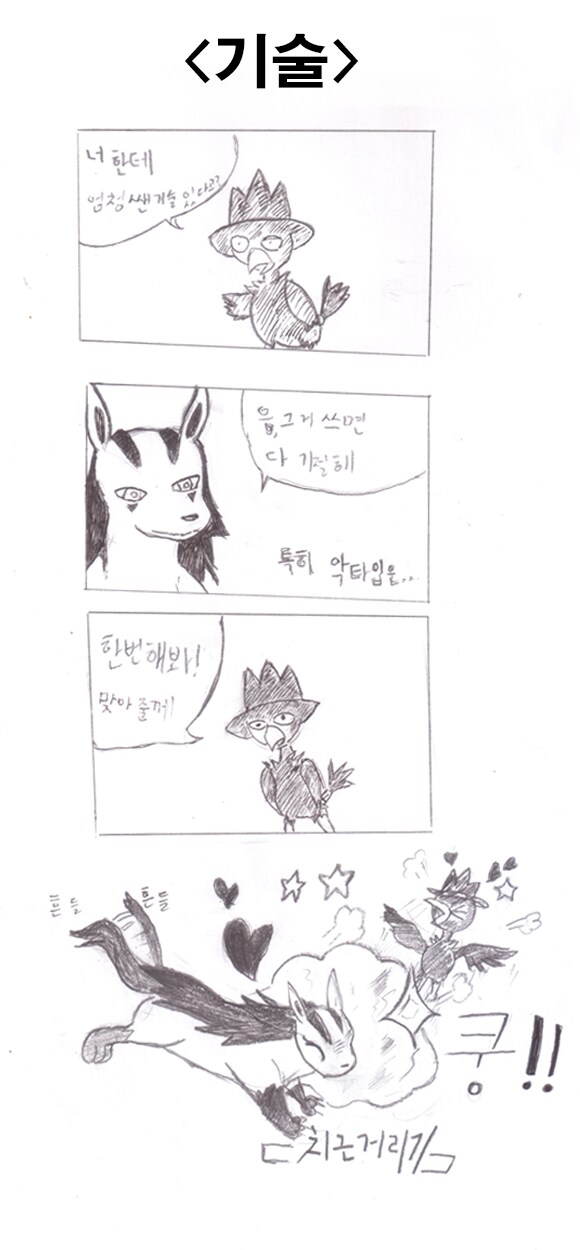 <기술>
너 한테
엄청 쌘 기술 있다고?
음, 그거 쓰면
다 기절해
특히 악타입은...
한번 해봐!
맞아 줄께
흔들
흔들
쿵!!
치근거리기